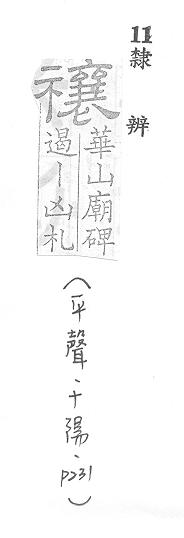 11隸辨
禳
華山廟碑
遏｜凶札
（平聲、十陽、P231）